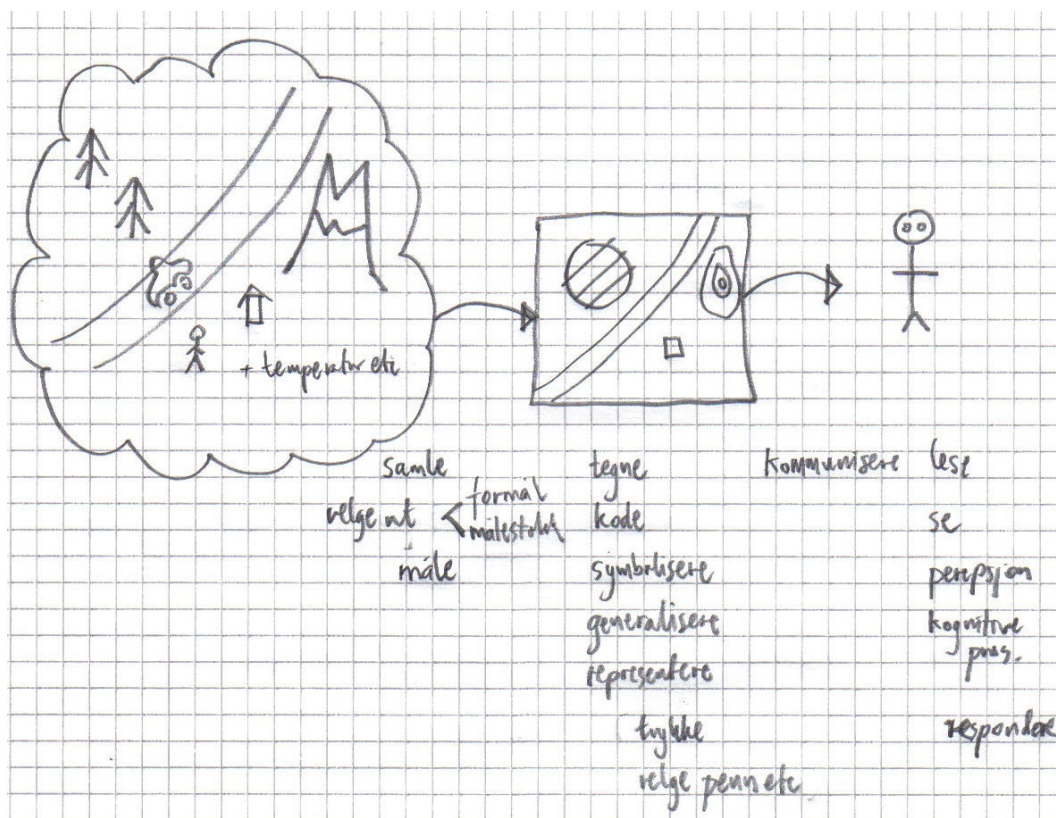 + temperatur etc
samle
velge ut < formål
målestokk
måle
tegne
kode
symbolisere
generalisere
representere
trykke
velge penn etc
kommunisere
lese
se
persepsjon
kognitive
pros.
respondere